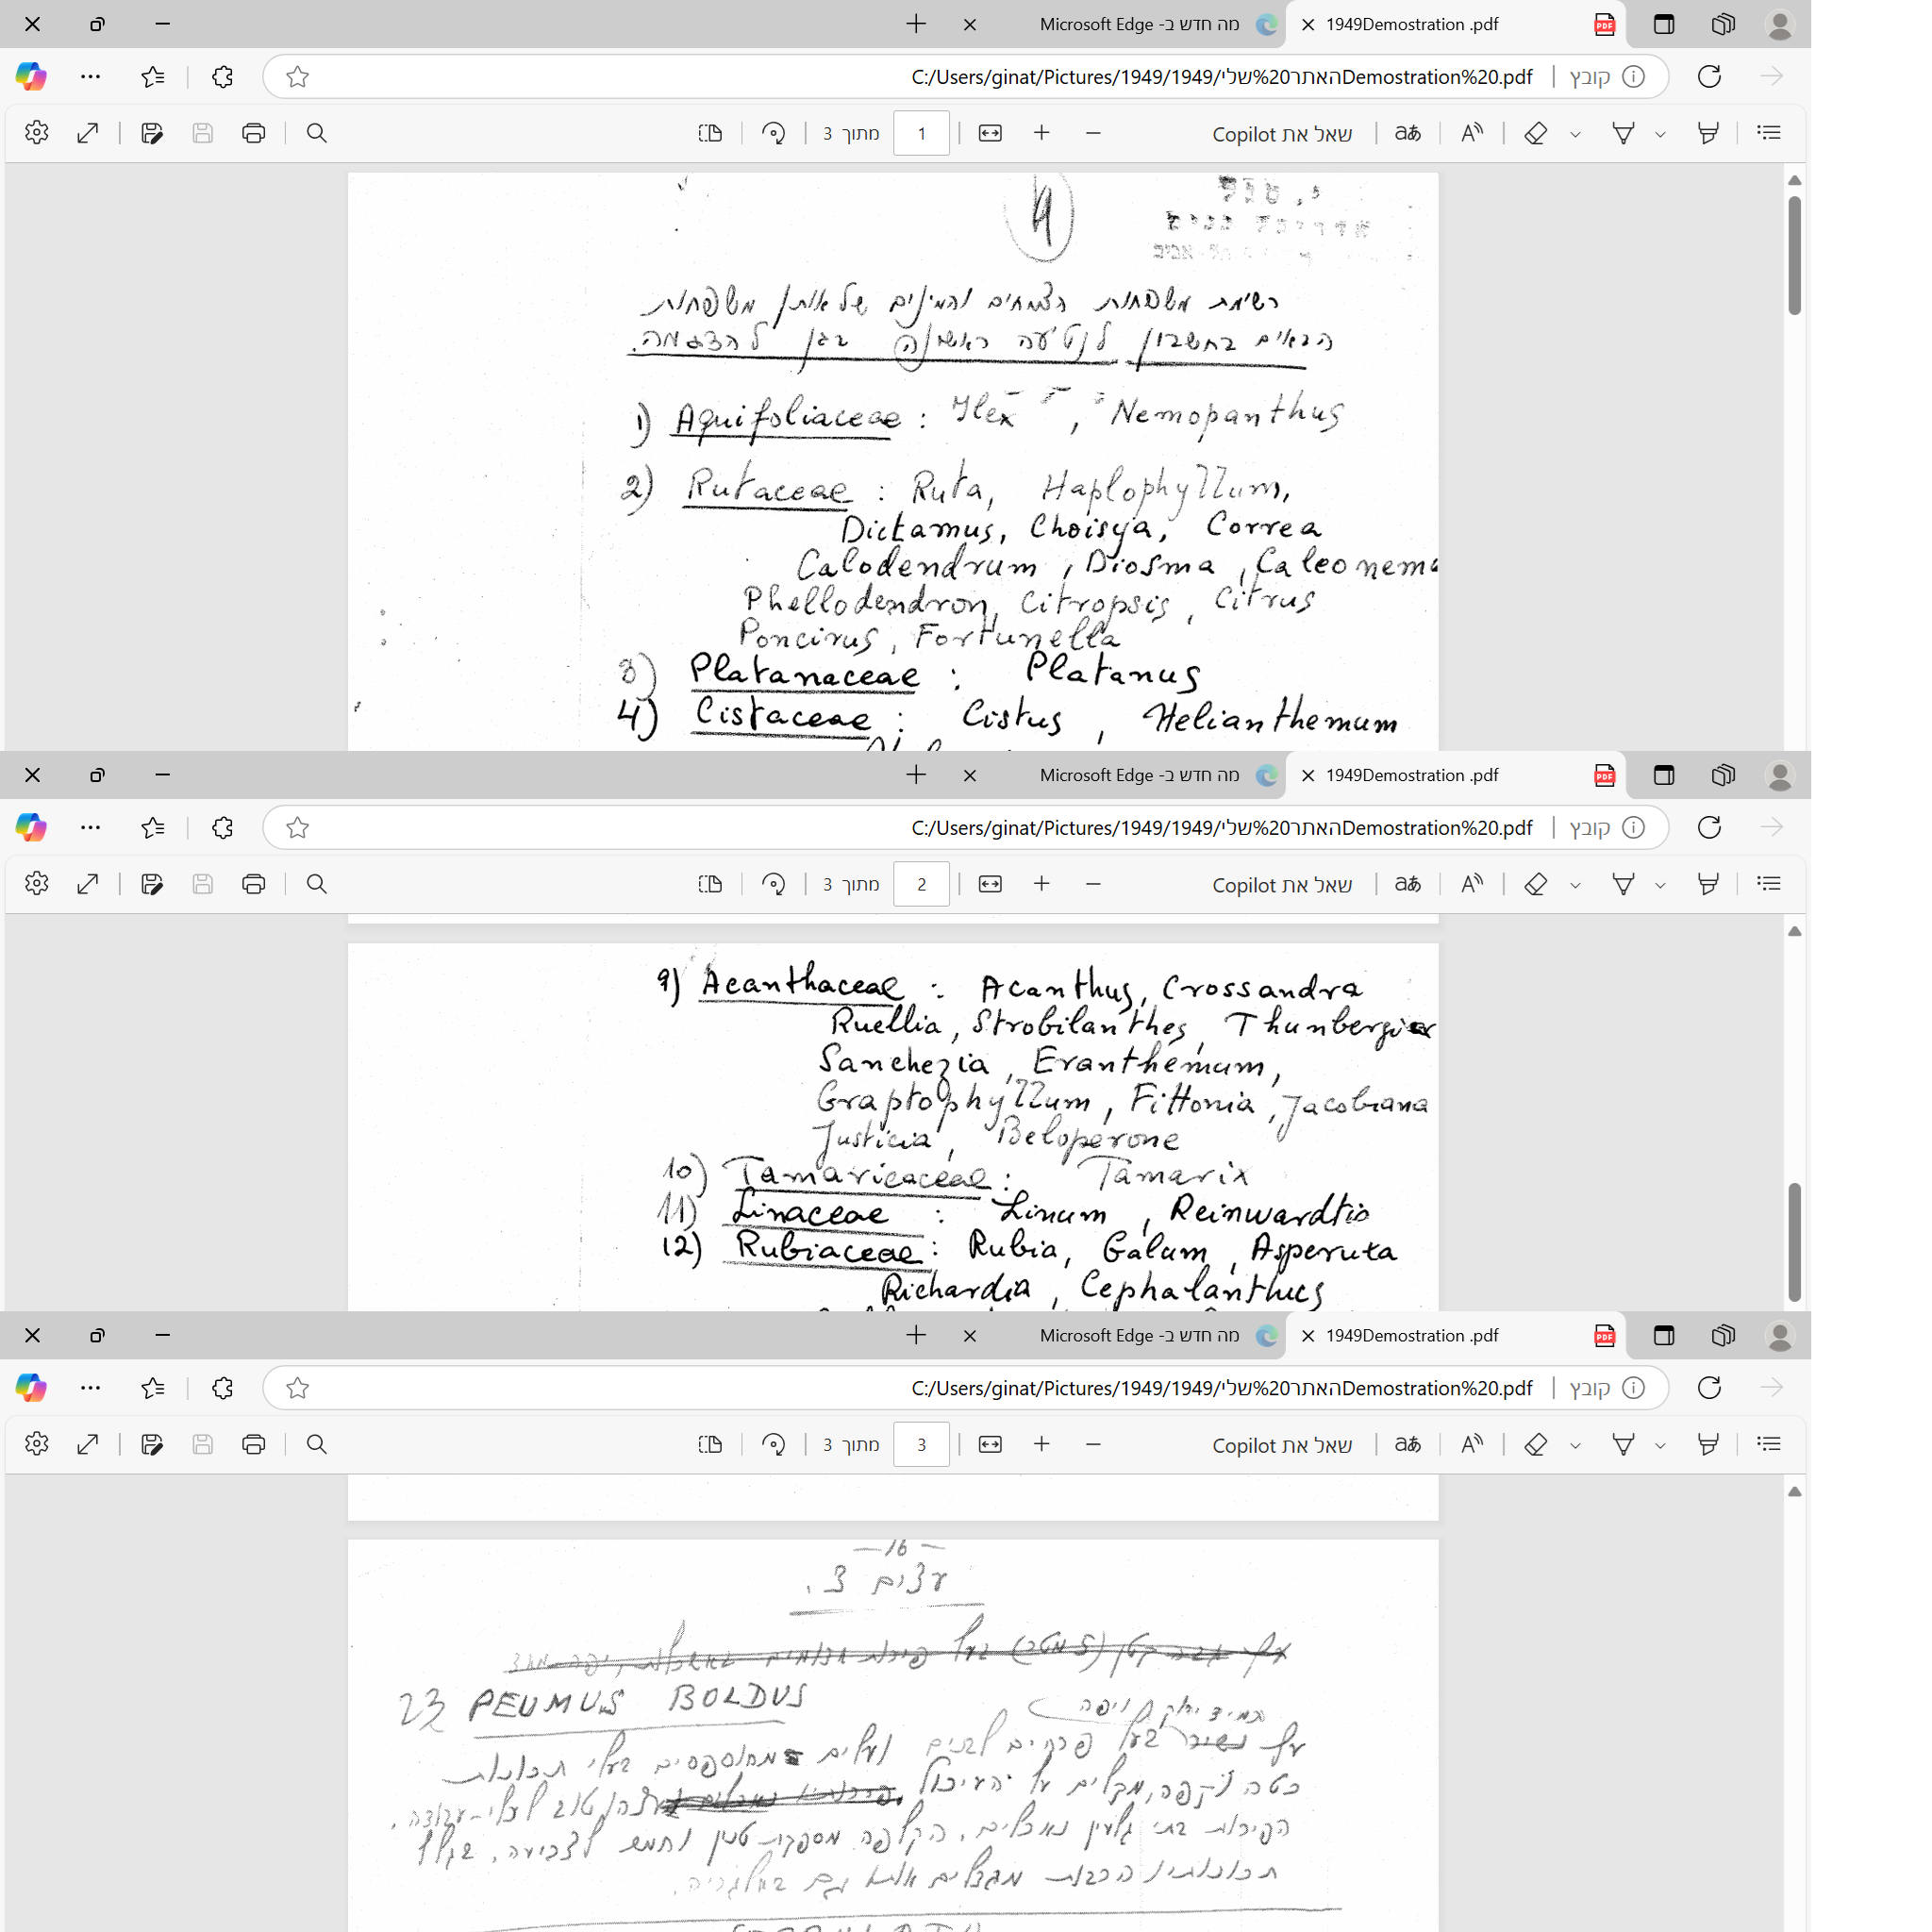 1949Demostration .pdf
מה חדש ב- Microsoft Edge
קובץ
C:/Users/ginat/Pictures/1949/1949/האתר%20שליDemostration%20.pdf
שאל את Copilot
1 מתוך 3
רשימת משפחות הצמחים והמינים של אותן משפחות
הבאים בחשבון לנטיעה ראשונה בגן להדגמה.
1) Aquifoliaceae : Ilex , Nemopanthus
2) Rutaceae : Ruta, Haplophyllum,
Dictamus, Choisya, Correa
Calodendrum , Diosma , Caleonema
Phellodendron, Citropsis, Citrus
Poncirus, Fortunella
3) Platanaceae : Platanus
4) Cistaceae : Cistus , Helianthemum
1949Demostration .pdf
מה חדש ב- Microsoft Edge
קובץ
C:/Users/ginat/Pictures/1949/1949/האתר%20שליDemostration%20.pdf
שאל את Copilot
2 מתוך 3
9) Acanthaceae : Acanthus, Crossandra
Ruellia, Strobilanthes, Thunbergia
Sanchezia, Eranthemum,
Graptophyllum, Fittonia, Jacobiana
Justicia, Beloperone
10) Tamaricaceae : Tamarix
11) Linaceae : Linum , Reinwardtia
12) Rubiaceae : Rubia, Galum, Asperuta
Richardia, Cephalanthus
1949Demostration .pdf
מה חדש ב- Microsoft Edge
קובץ
C:/Users/ginat/Pictures/1949/1949/האתר%20שליDemostration%20.pdf
שאל את Copilot
3 מתוך 3
-16-
עצים 3.
23 PEUMUS BOLDUS
תמיד ירוק ויפה
עץ נשיר בעל פרחים לבנים ועלים מחוספסים בעלי תכונות
כטה וקפה, מקלים על העיכול טוב לעלי-עבודה.
הפירות בתי גלעין נאכלים. הקליפה מספקת טנין וחמש לצביעה. בגלל
תכונותיו הרבות מגדלים אותו גם באלגריה.